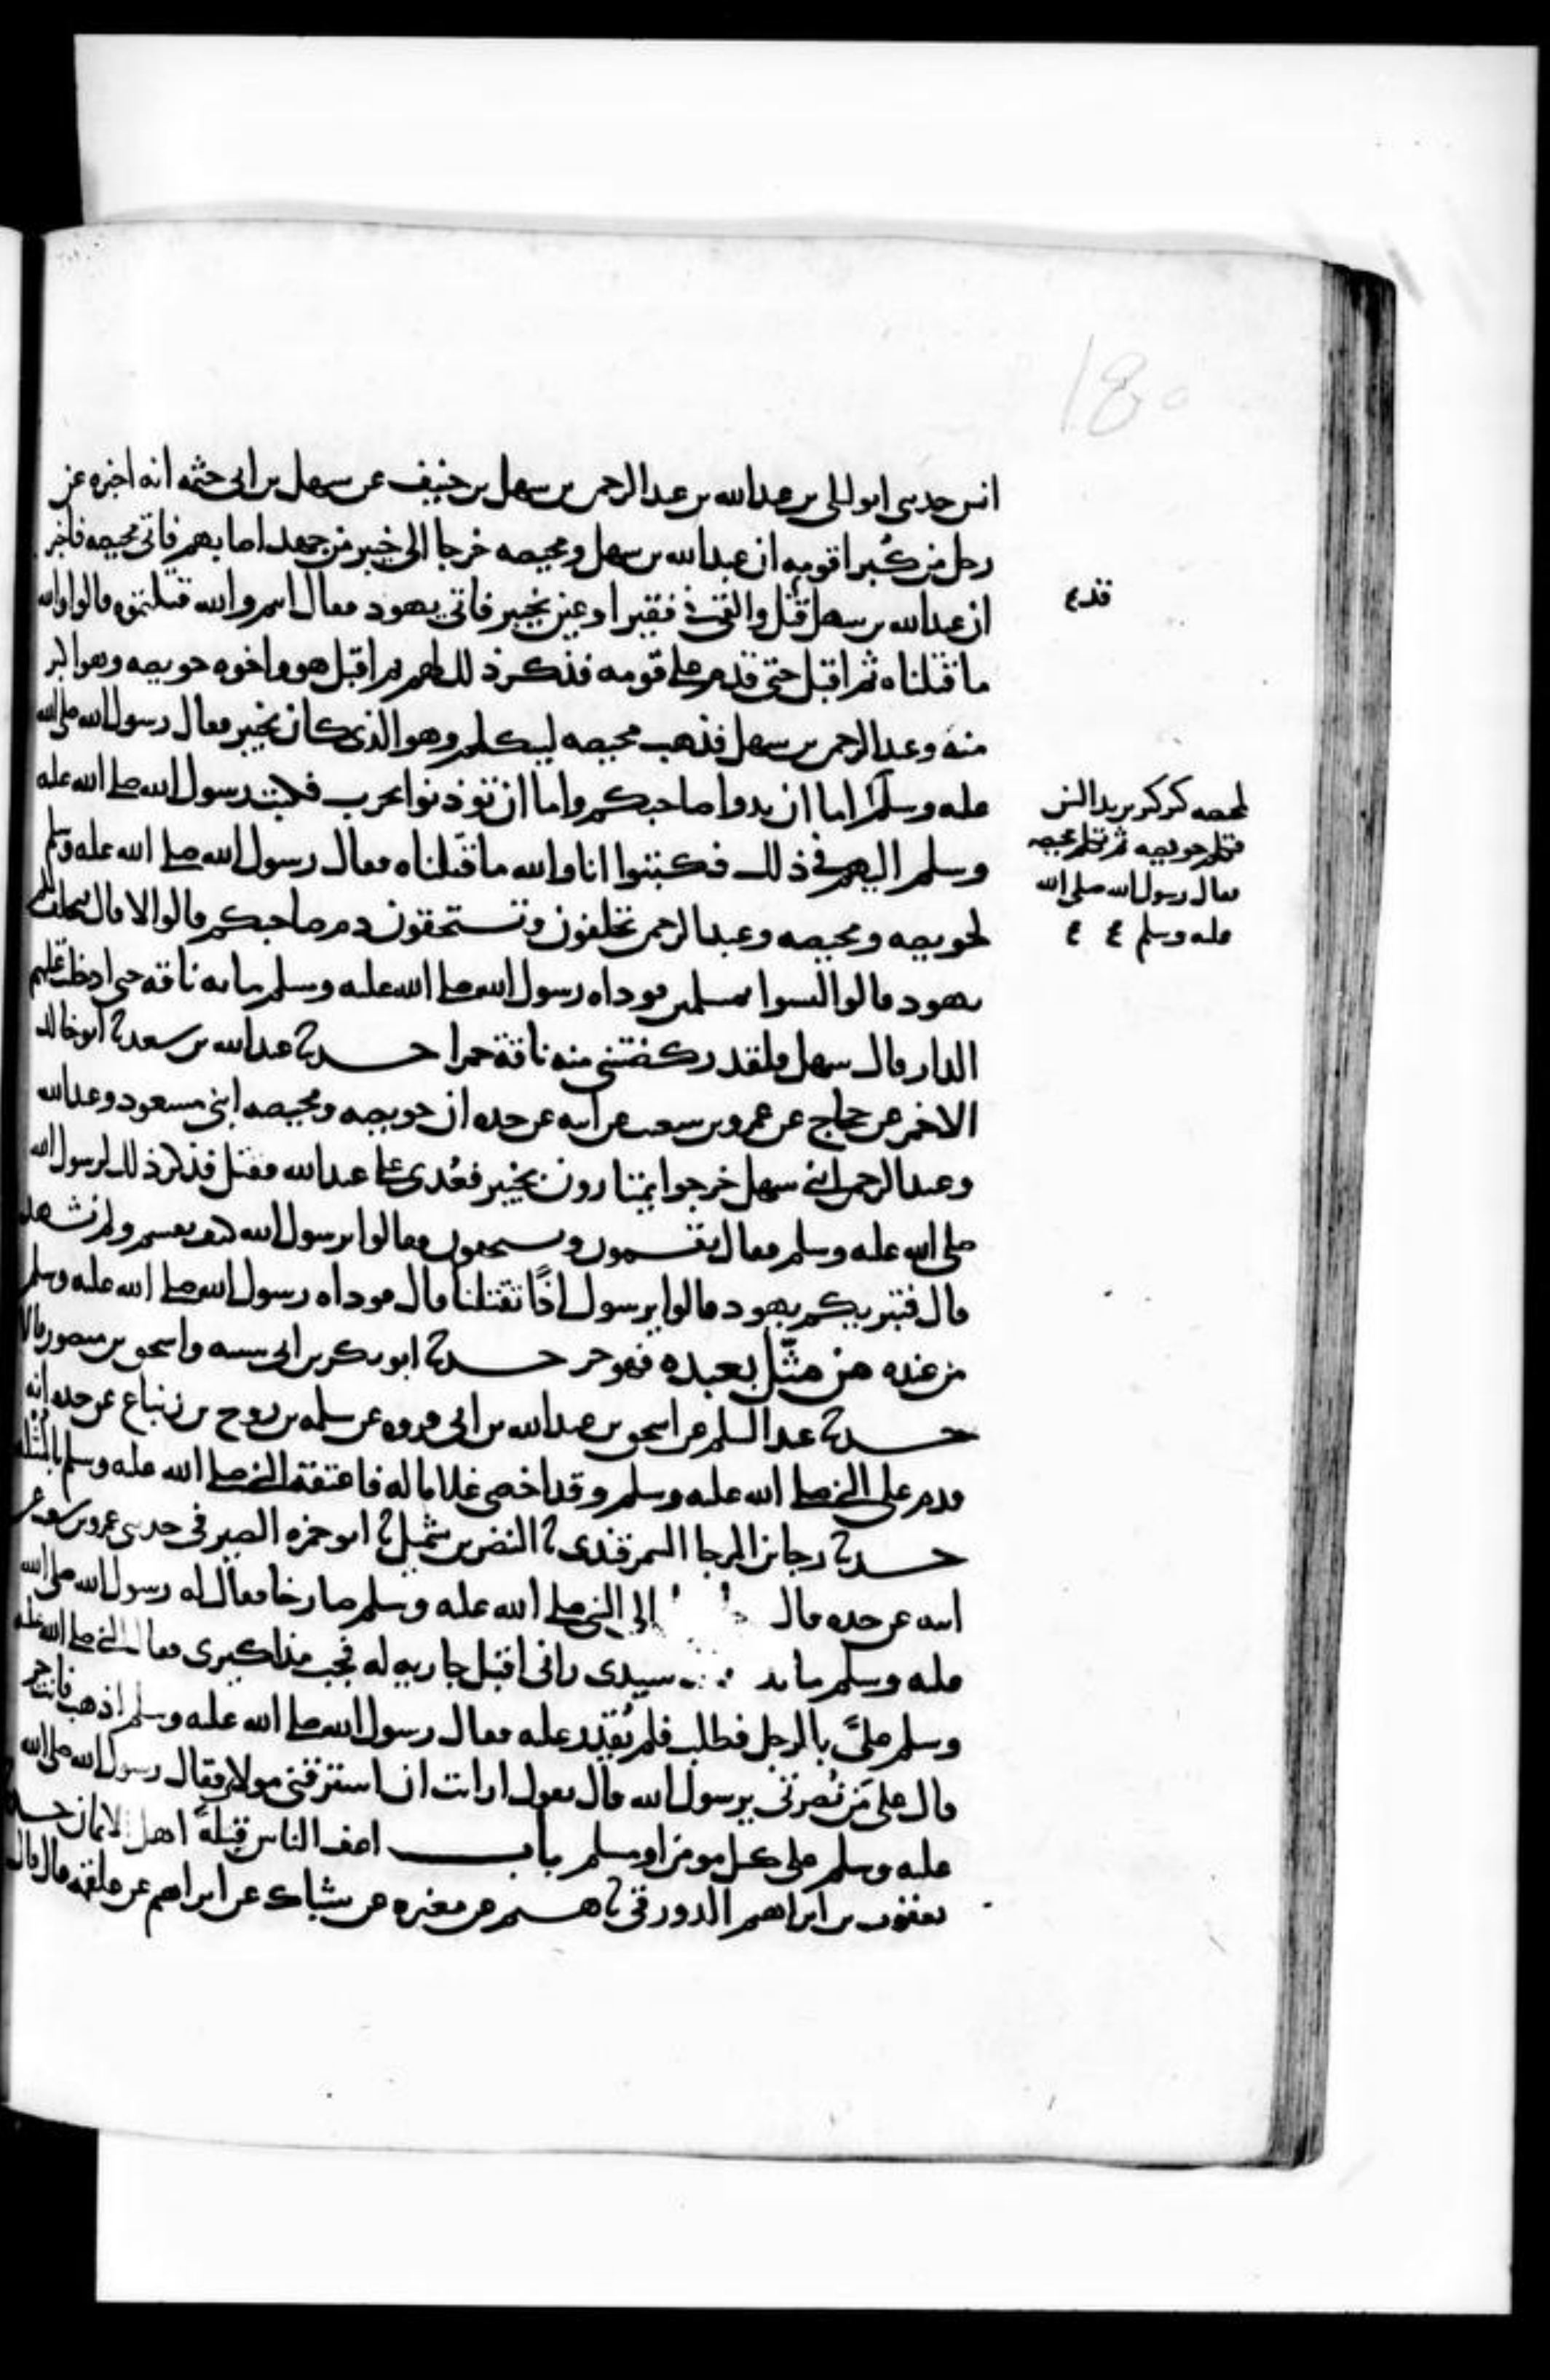 180
انس حدثني ابو ليلى بن عبد الله بن عبد الرحمن بن سهل بن حنيف عن سهل بن ابي حثمه انه اخبره عن
رجل من كُبرا قومه ان عبد الله بن سهل ومحيصه خرجا الى خيبر من جهد اصابهم فاتى محيصه فاخبر
ان عبد الله بن سهل قتل والقي في فقير او عين بخيبر فاتى يهود فقال انتم والله قتلتموه قالوا والله
قد
ما قتلناه ثم اقبل حتى قدم على قومه فذكر ذلك لهم ثم اقبل هو واخوه حويصه وهو اكبر
منه وعبد الرحمن بن سهل فذهب محيصه ليتكلم وهو الذي كان بخيبر فقال رسول الله صلى الله
عليه وسلم اما ان يدوا صاحبكم واما ان توذنوا بحرب فكتب رسول الله صلى الله عليه
لمحيصه كبر كبر يريد السن
فتكلم حويصه ثم تكلم محيصه
فقال رسول الله صلى الله
عليه وسلم
وسلم اليهم في ذلك فكتبوا انا والله ما قتلناه فقال رسول الله صلى الله عليه وسلم
لحويصه ومحيصه وعبد الرحمن تحلفون وتستحقون دم صاحبكم قالوا لا قال فتحلف لكم
يهود قالوا ليسوا بمسلمين فوداه رسول الله صلى الله عليه وسلم مايه ناقه حتى ادخلت عليهم
الدار قال سهل فلقد ركضتني منه ناقة حمرا حدثنا عبد الله بن سعيد نا ابو خالد
الاحمر عن حجاج عن عمرو بن شعيب عن ابيه عن جده ان حويصه ومحيصه ابني مسعود وعبد الله
وعبد الرحمن ابني سهل خرجوا يمتارون بخيبر فعُدى على عبد الله فقتل فذكر ذلك لرسول الله
صلى الله عليه وسلم فقال تقسمون وتستحقون فقالوا يرسول الله كيف نقسم ولم نشهد
قال فتبريكم يهود قالوا يرسول اذًا تقتلنا قال فوداه رسول الله صلى الله عليه وسلم
من عنده من مثّل بعبده فهو حر حدثنا ابو بكر بن ابي شيبه واسحق بن منصور قالا
حدثنا عبد السلم عن اسحق بن عبد الله بن ابي فروه عن سلمه بن روح بن زنباع عن جده انه
قدم على النبي صلى الله عليه وسلم وقد اخصى غلاما له فاعتقه النبي صلى الله عليه وسلم بالمثله
حدثنا رجا بن المرجا السمرقندي نا النضر بن شميل نا ابو حمزه الصيرفي حدثني عمرو بن شعيب عن
ابيه عن جده قال الى النبي صلى الله عليه وسلم صارخا فقال له رسول الله صلى الله
عليه وسلم ما سيدي راني اقبل جاريه له فجب مذاكيري فقال النبي صلى الله عليه
وسلم عليَّ بالرجل فطلب فلم يُقدر عليه فقال رسول الله صلى الله عليه وسلم اذهب فانت حر
قال على مَن نُصرتي يرسول الله قال يقول ارايت ان استرقني مولاي فقال رسول الله صلى الله
عليه وسلم على كل مومن او مسلم باب اعف الناس قتلةً اهل الايمان حدثنا
يعقوب بن ابراهيم الدورقي نا هشيم عن مغيره عن شباك عن ابراهيم عن علقمه قال قال